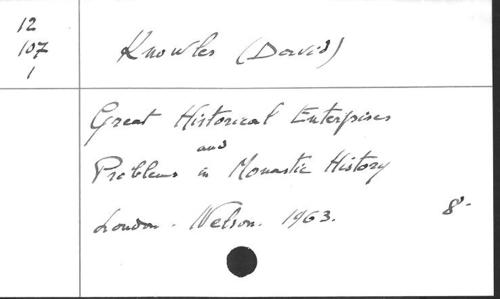 12
107
1
Knowles (David)
Great Historical Enterprises
and
Problems in Monastic History
London. Nelson. 1963. 8º.